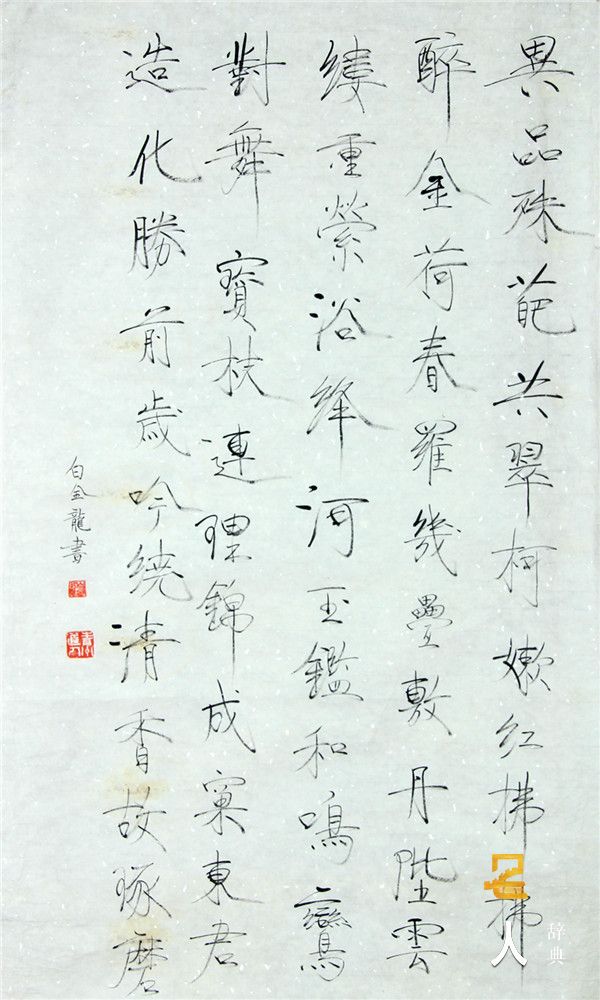 異品殊葩共翠柯嫩紅拂拂
醉金荷春羅幾疊敷丹陛雲
縷重縈浴絳河玉鑑和鳴鸞
對舞寶枝連理錦成窠東君
造化勝前歲吟繞清香故琢磨
白金龍書
人
辞典